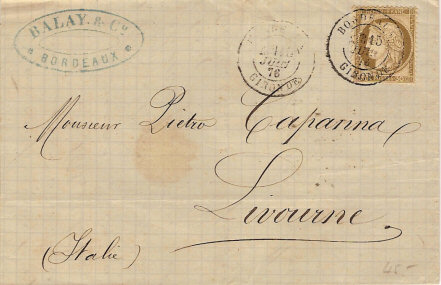 BALAY & Cie
BORDEAUX
JUIN
76
GIRONDE
BORDE
15
76
GIRONDE
Monsieur Pietro Capanna
Livourne
(Italie)
45.-